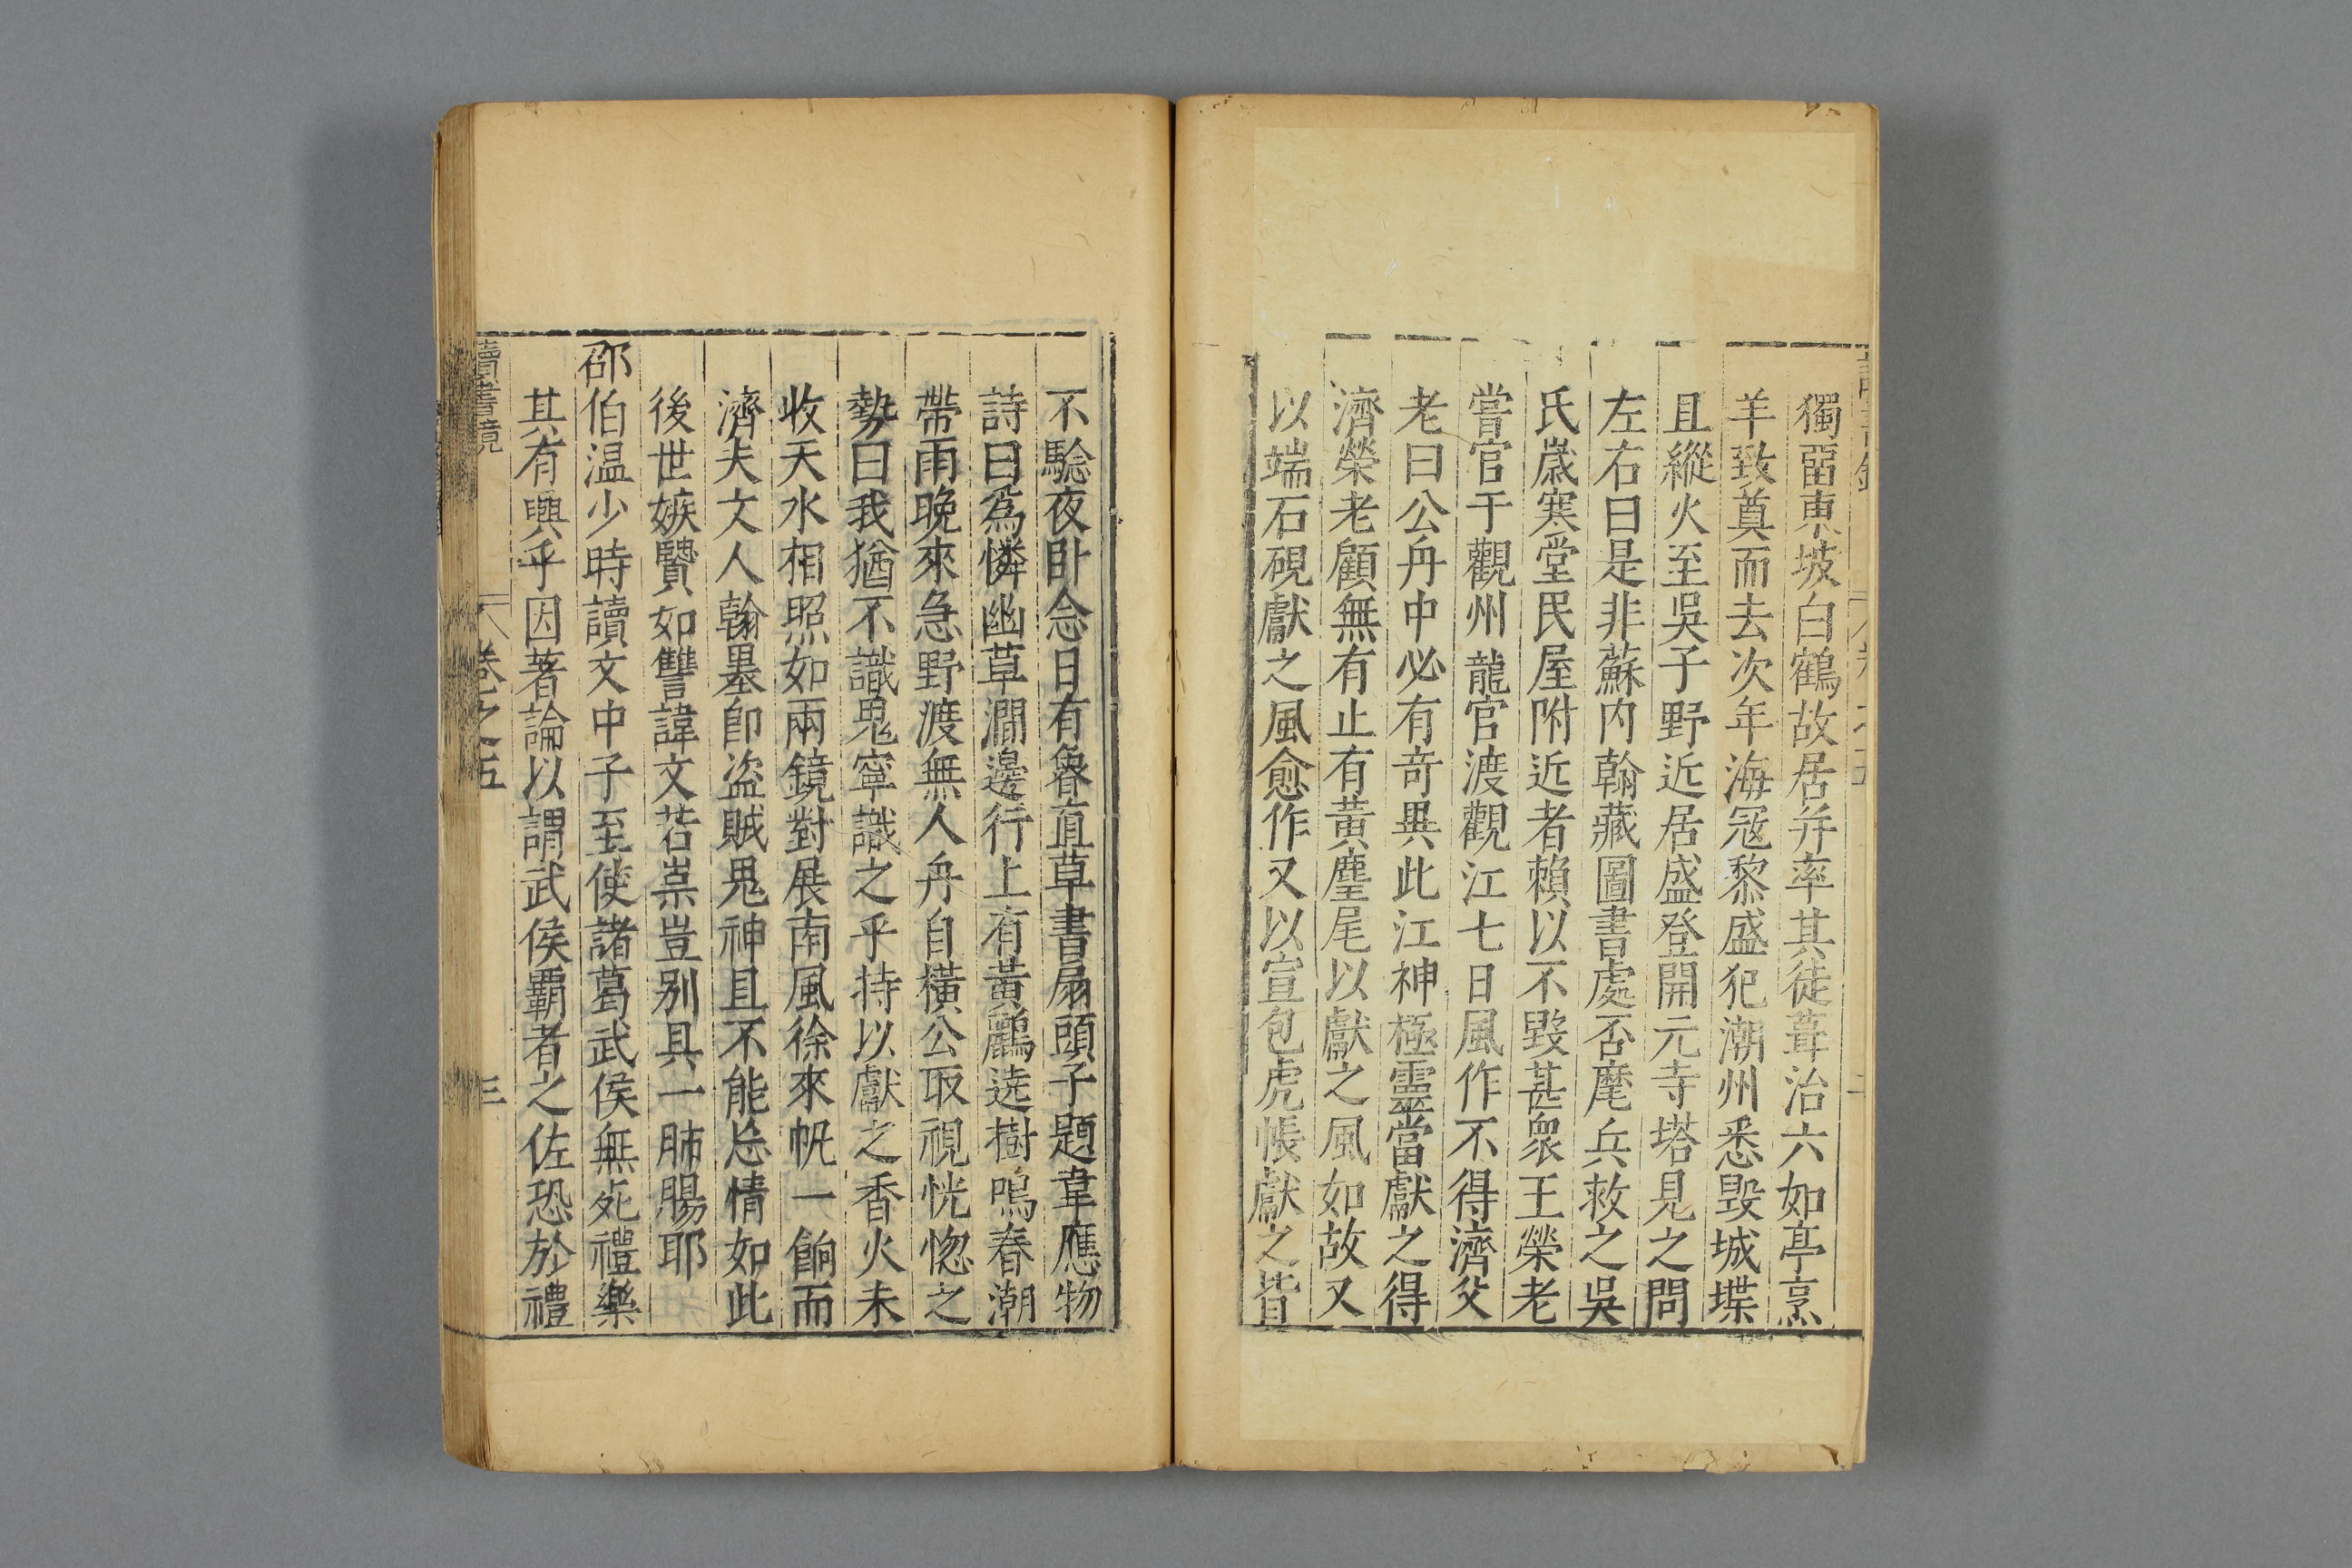 獨畱東坡白鶴故居并率其徒葺治六如亭烹
羊致奠而去次年海寇黎盛犯潮州悉毀城堞
且縱火至吳子野近居盛登開元寺塔見之問
左右曰是非蘇内翰藏圖書處否麾兵救之吳
氏嵗寒堂民屋附近者賴以不毀甚衆王榮老
嘗官于觀州龍官渡觀江七日風作不得濟父
老曰公舟中必有竒異此江神極靈當獻之得
濟榮老顧無有止有黃麈尾以獻之風如故又
以端石硯獻之風愈作又以宣包虎帳獻之皆
不騐夜卧念曰有魯直草書扇頭子題韋應物
詩曰爲憐幽草澗邊行上有黃鸝遶樹鳴春潮
帶雨晚來急野渡無人舟自橫公取視恍惚之
勢曰我猶不識鬼寜識之乎持以獻之香火未
收天水相照如兩鏡對展南風徐來帆一餉而
濟夫文人翰墨卽盗賊鬼神且不能忘情如此
後世嫉賢如讐諱文若祟豈别具一肺腸耶
邵伯温少時讀文中子至使諸葛武侯無死禮樂
其有興乎因著論以謂武侯覇者之佐恐於禮
讀書鏡
卷之五
三